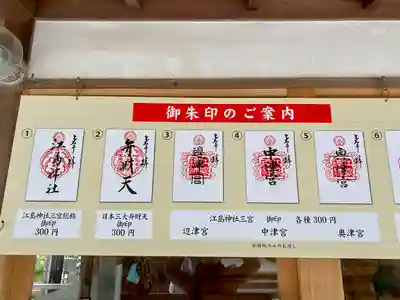 御朱印のご案内
① ② ③ ④ ⑤ ⑥
江島神社
弁財天
邊津宮
中津宮
奥津宮
江島神社三宮総称
御印
300円
日本三大弁財天
御印
300円
江島神社三宮 御印 各種300円
辺津宮 中津宮 奥津宮